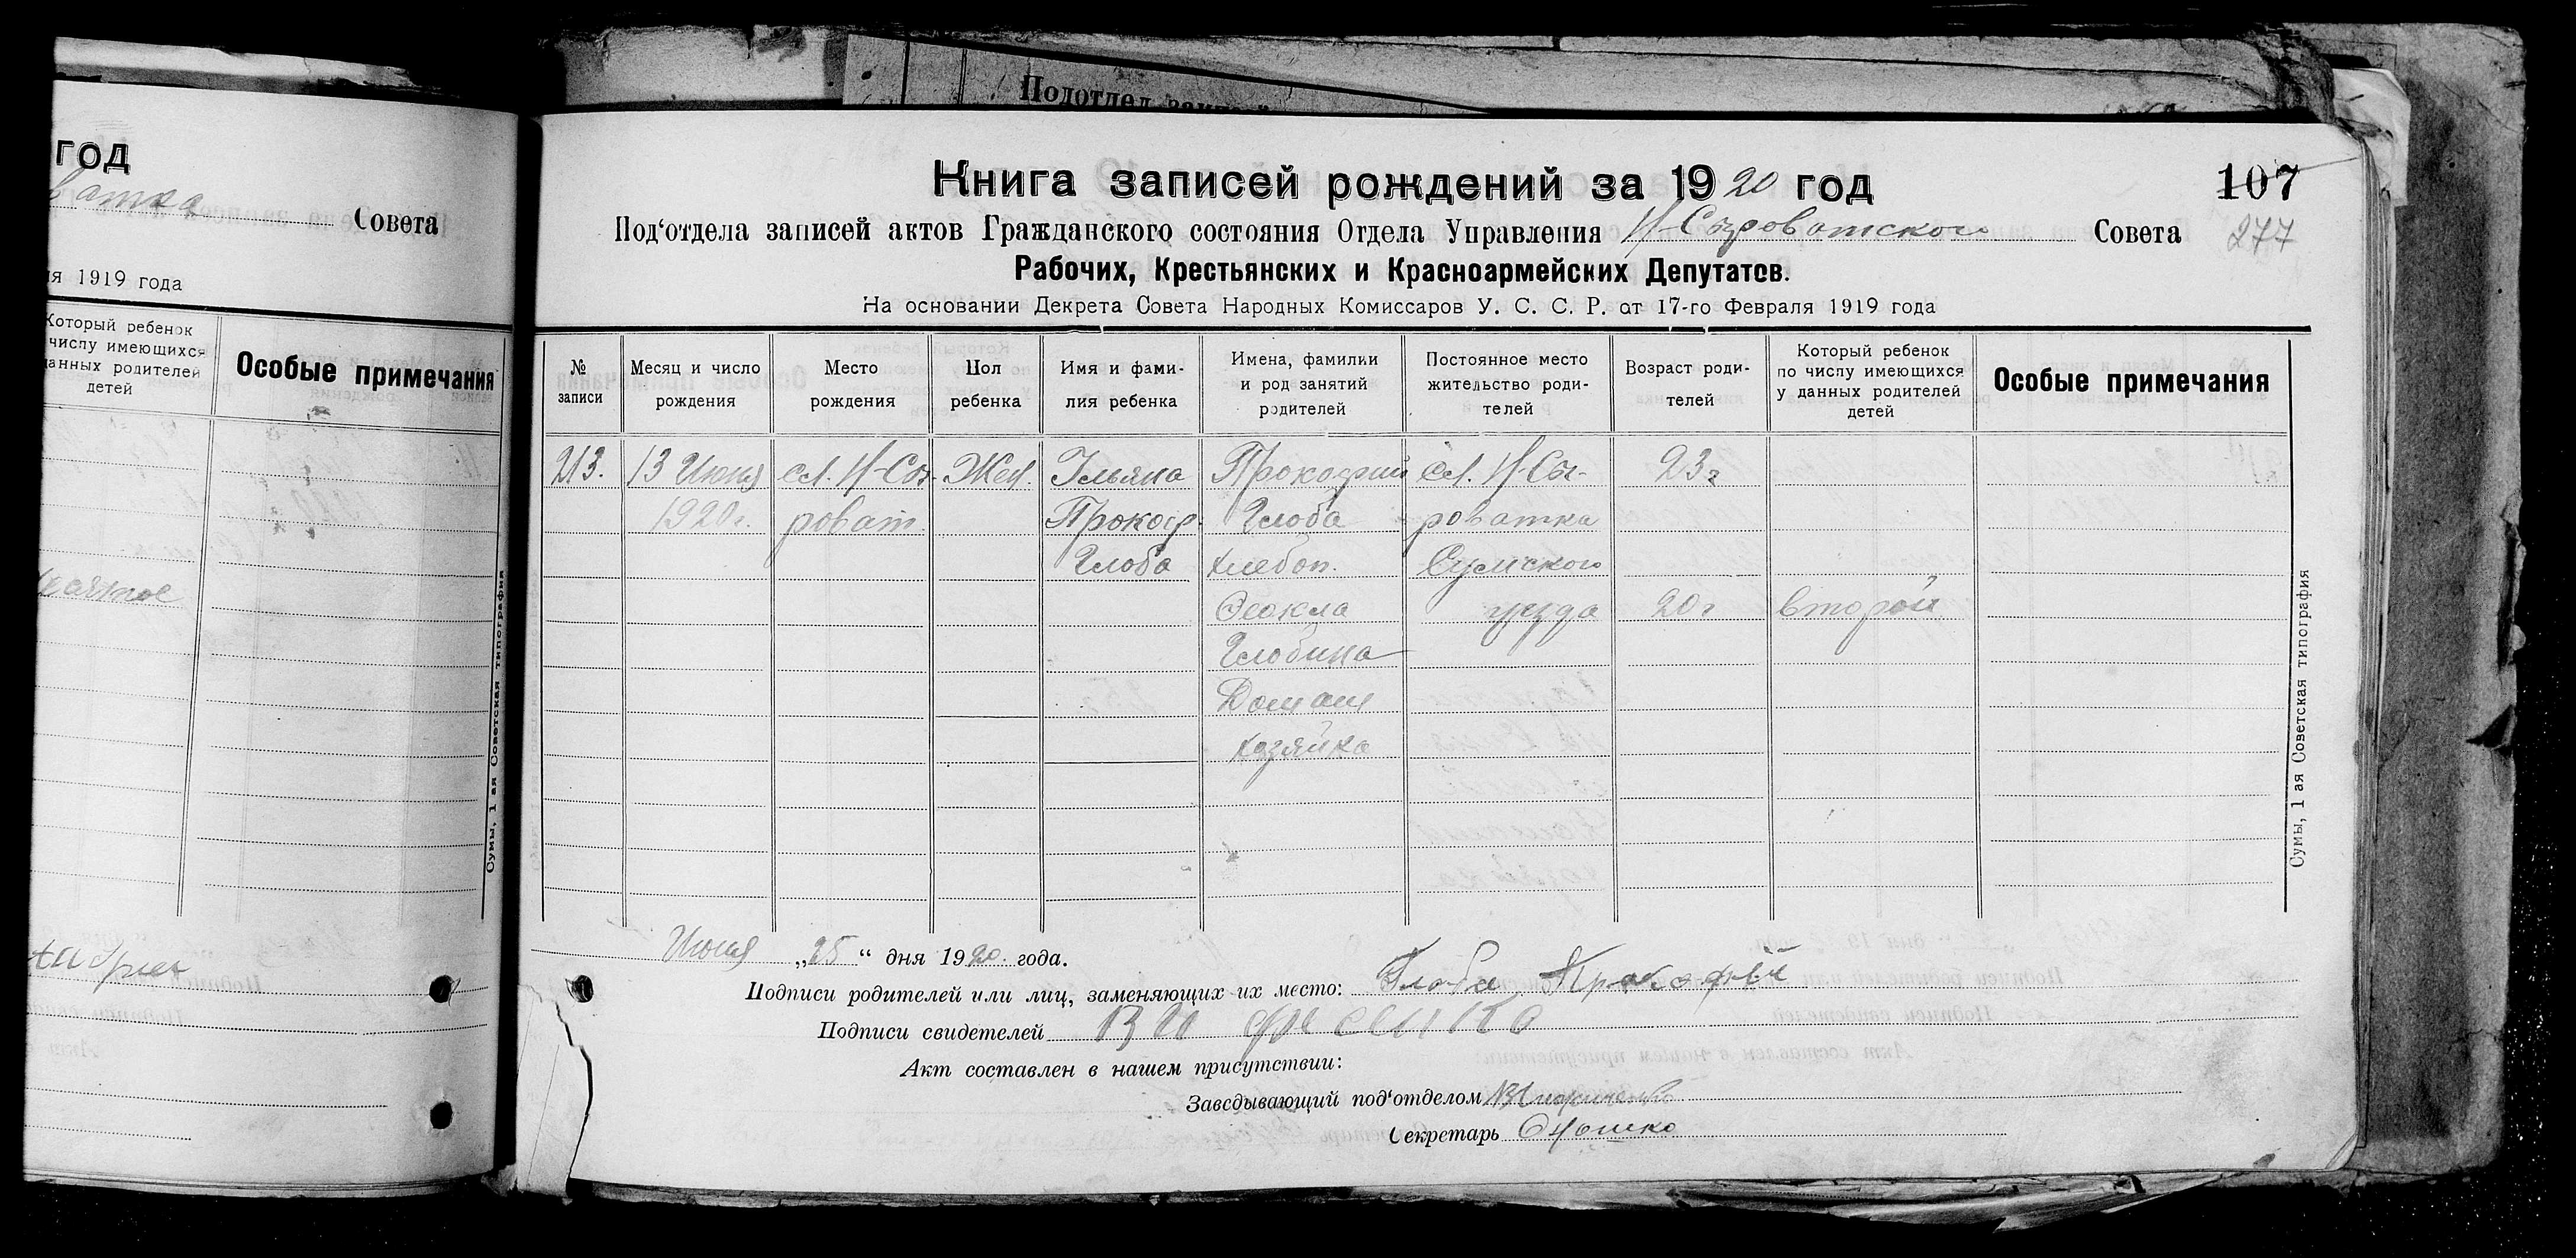 Подотдел
год
Совета
ия 1919 года
Который ребенок
числу имеющихся
данных родителей
детей
Особые примечания
Сумы, 1 ая Советская типография
Книга записей рождений за 1920 год
107
Под‘отдела записей актов Гражданского состояния Отдела Управления Н-Сыроватского Совета
277
Рабочих, Крестьянских и Красноармейских Депутатов.
На основании Декрета Совета Народных Комиссаров У. С. С. Р. от 17-го Февраля 1919 года
№ записи
Месяц и число рождения
Место рождения
Пол ребенка
Имя и фами-
лия ребенка
Имена, фамилии
и род занятий
родителей
Постоянное место
жительство роди-
телей
Возраст роди-
телей
Который ребенок
по числу имеющихся
у данных родителей
детей
Особые примечания
213. 13 Июня сл. Н-Сы- Жен. Ульяна Прокофий сл. Н-Сы- 23 г
1920 г. роват. Прокоф. Глоба роватка
Глоба хлебоп. Сумского
Фекла уезда 20 г второй
Глобина
Домаш
хозяйка
Июня „25“ дня 1920 года.
Подписи родителей или лиц, заменяющих их место: Глоба Прокофий
Подписи свидетелей
Акт составлен в нашем присутствии:
Заведывающий под‘отделом
Секретарь
Сумы, 1 ая Советская типография